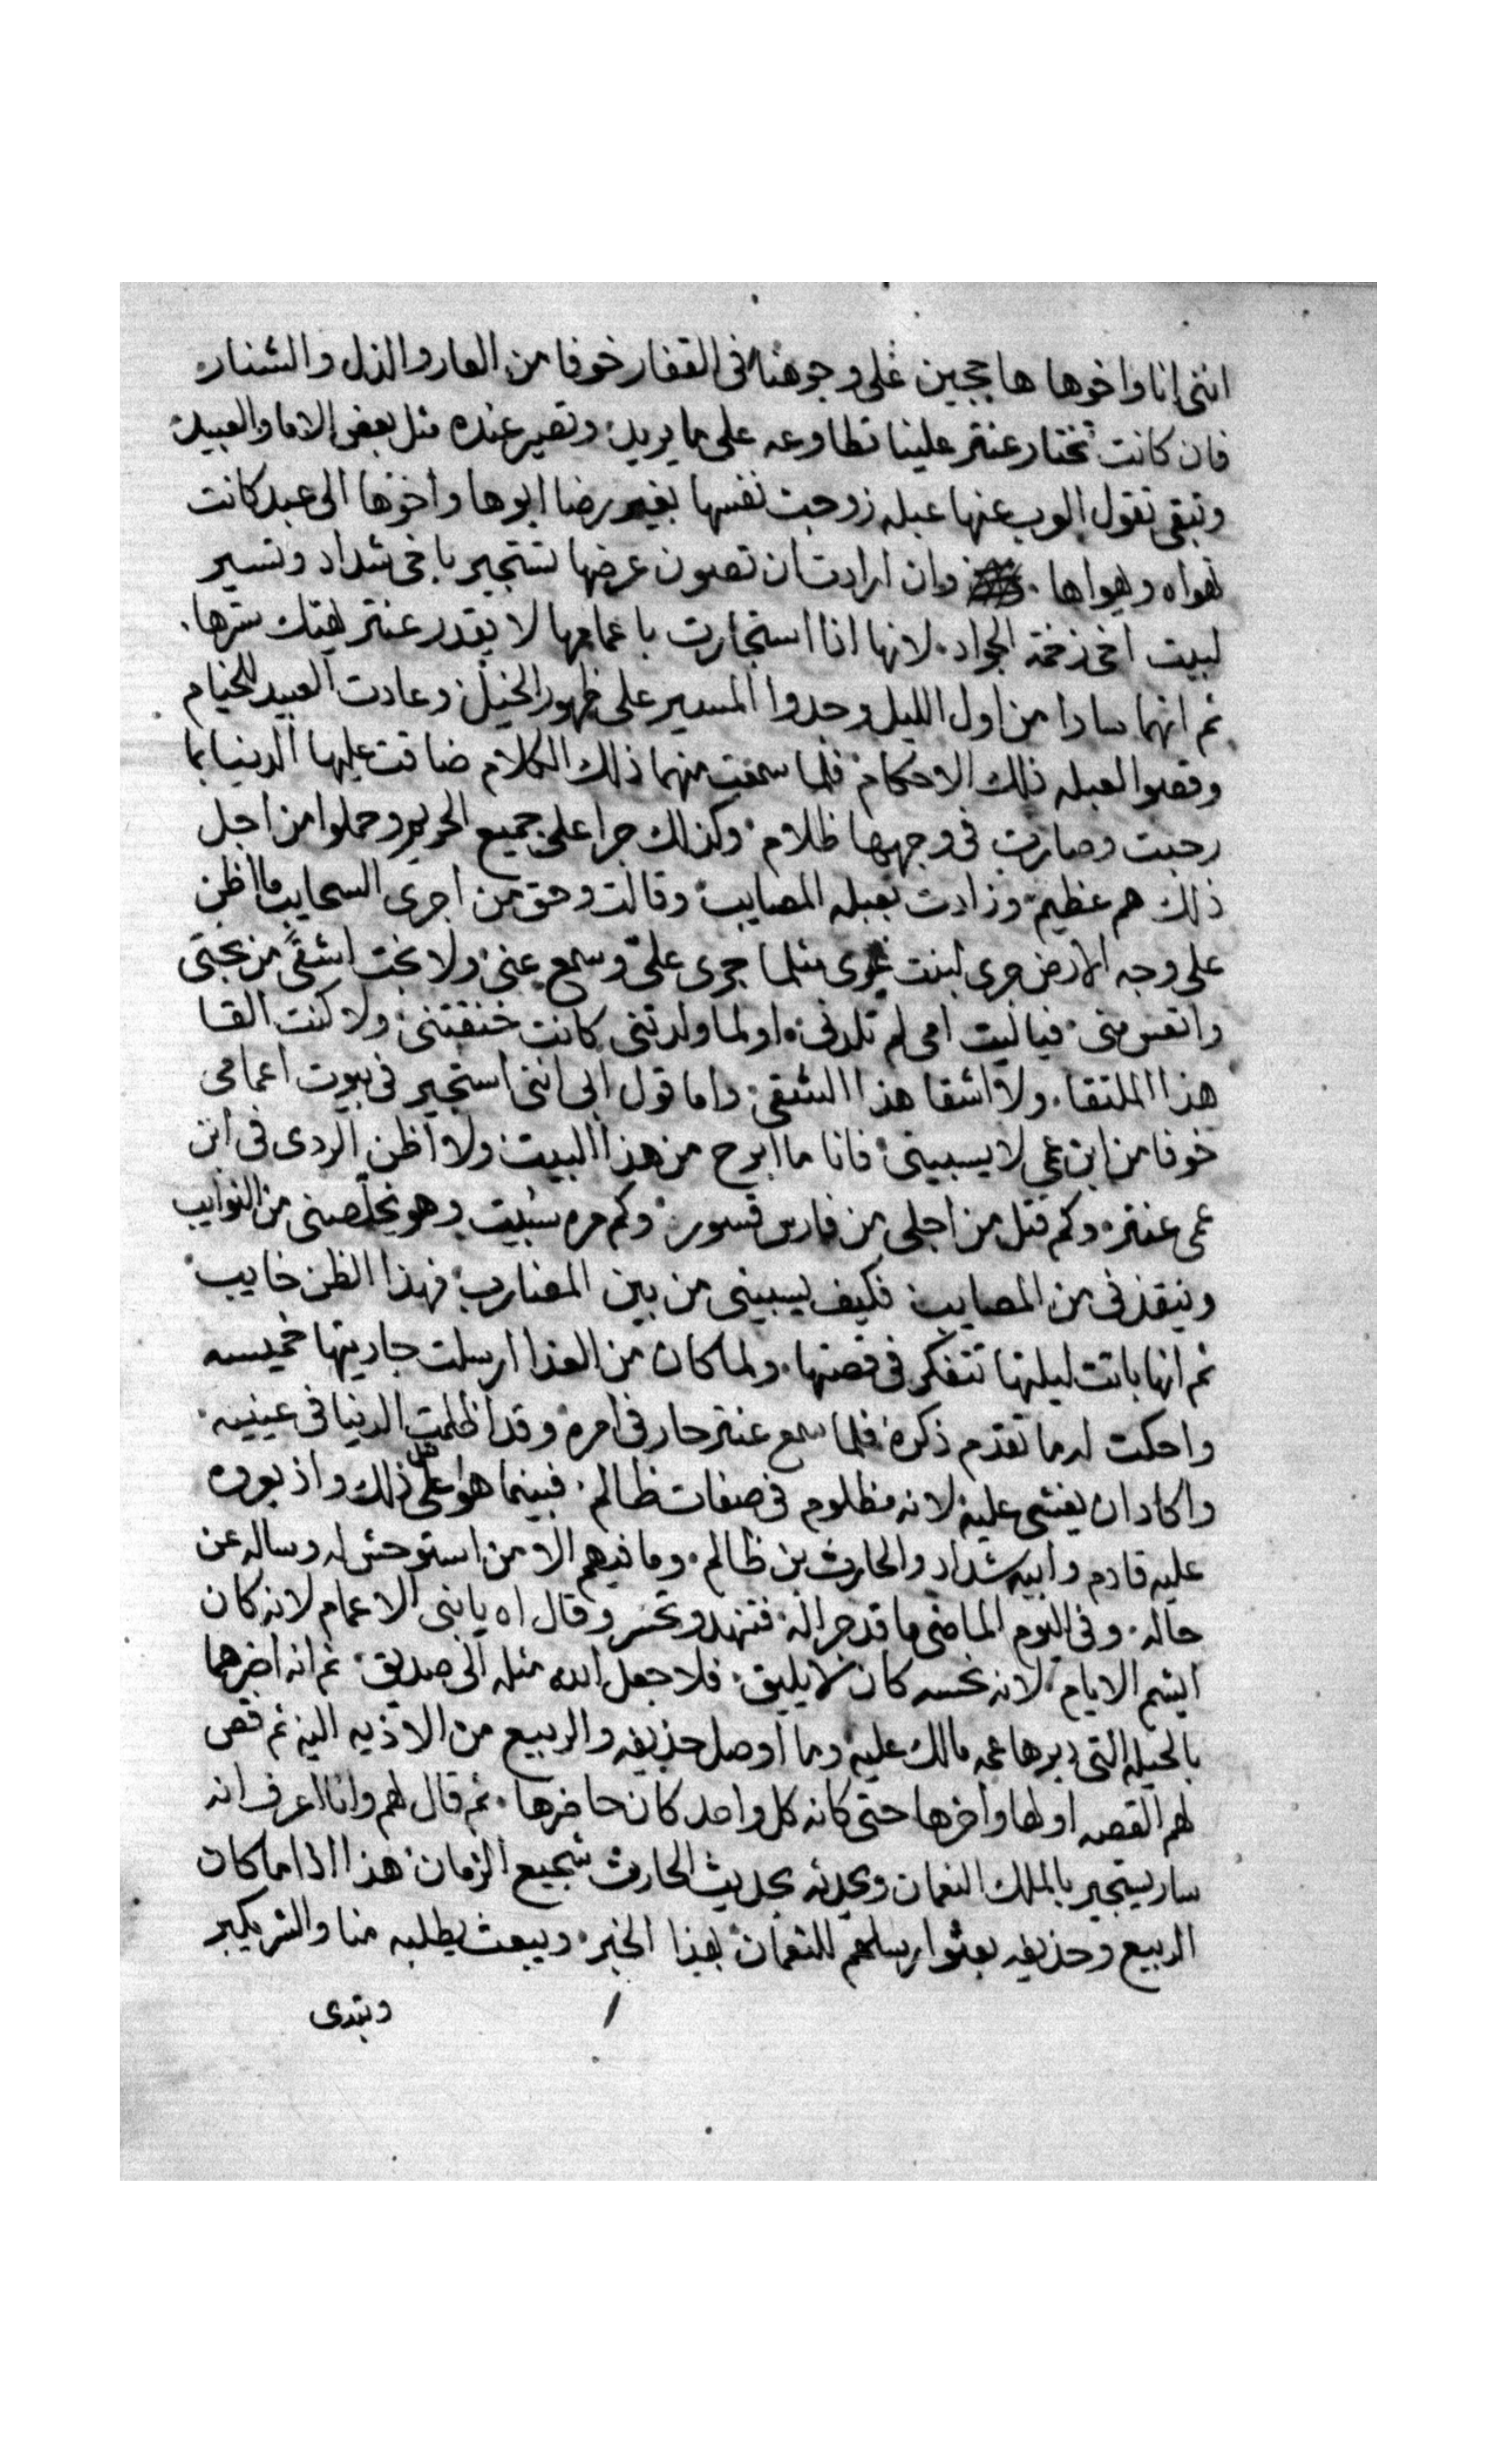 انني انا واخوها هاججين على وجوهنا في القفار خوفا من العار والذل والشنار
فان كانت تختار عنتر علينا تطاوعه على ما يريد وتصير عنده مثل بعض الاما والعبيد
وتبقى تقول العرب عنها عبله زوجت نفسها بغير رضا ابوها واخوها الى عبد كانت
تهواه ويهواها وان ارادت ان تصون عرضها تستجير باخى شداد وتسير
لبيت اخى زخمة الجواد لانها اذا استجارت باعمامها لا يقدر عنتر يهتك سترها
ثم انهما سارا من اول الليل وجدوا المسير على ظهور الخيل وعادت العبيد للخيام
وقصوا لعبله ذلك الاحكام فلما سمعت منهما ذلك الكلام ضاقت عليها الدنيا بما
رحبت وصارت في وجهها ظلام وكذلك جرا على جميع الحريم وحملوا من اجل
ذلك هم عظيم وزادت بعبله المصايب وقالت وحق من اجرى السحايب ما اظن
على وجه الارض جرى لبنت غيرى مثلما جرى على وسمع عنى ولا بخت اشقى من بختى
واتعس منى فياليت امى لم تلدنى اولما ولدتنى كانت خنقتنى ولا كنت القا
هذا الملتقا ولا اشقا هذا الشقى واما قول ابى اننى استجير في بيوت اعمامى
خوفا من ابن عمى لا يسبينى فانا ما ابرح من هذا البيت ولا اظن الردى في ابن
عمى عنتر وكم قتل من اجلى من فارس قسور وكم مره سبيت وهو يخلصنى من النوايب
وينقذنى من المصايب فكيف يسبينى من بين المضارب فهذا الظن خايب
ثم انها باتت ليلتها تتفكر في قصتها ولما كان من الغدا ارسلت جاريتها خميسه
واحكت له ما تقدم ذكره فلما سمع عنتر حار في امره وقد اظلمت الدنيا في عينيه
واكاد ان يغشى عليه لانه مظلوم في صفات ظالم فبينما هو على ذلك واذ بعروه
عليه قادم وابيه شداد والحارث بن ظالم وما فيهم الا من استوحش له وساله عن
حاله وفي اليوم الماضى ما قد جرا له فتنهد وتحسر وقال اه يا بنى الاعمام لانه كان
ايشم الايام لانه نحسه كان لا يليق فلا جعل الله مثله الى صديق ثم انه اخبرهما
بالحيله التى دبرها عمه مالك عليه وما اوصل حذيفه والربيع من الاذيه اليه ثم قص
لهم القصه اولها واخرها حتى كانه كل واحد كان حاضرها ثم قال لهم وانا اعرف انه
سار يستجير بالملك النعمان ويحدثه بحديث الحارث شجيع الزمان هذا اذا ما كان
الربيع وحذيفه بعثوا رسلهم للنعمان بهذا الخبر ويبعث يطلبه منا والشر يكبر
ويتدى